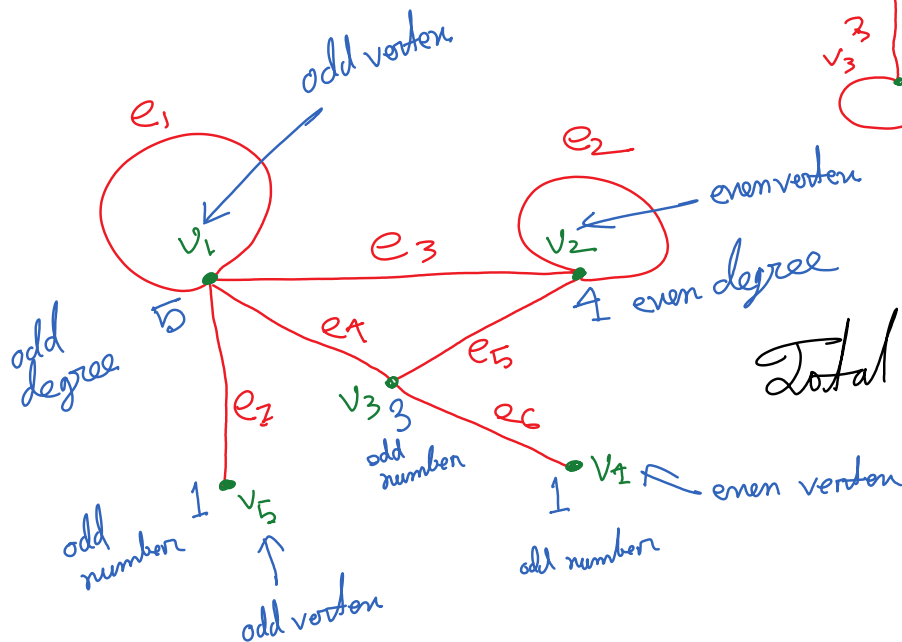 odd verten
3
v3
e1
e2
enen verten
v1
e3
v2
5
4 even degree
odd
degree
e4
e5
Total
v3 3
e7
e6
odd
number
1 v5
1 v4
enen verten
odd
number
odd number
odd verten